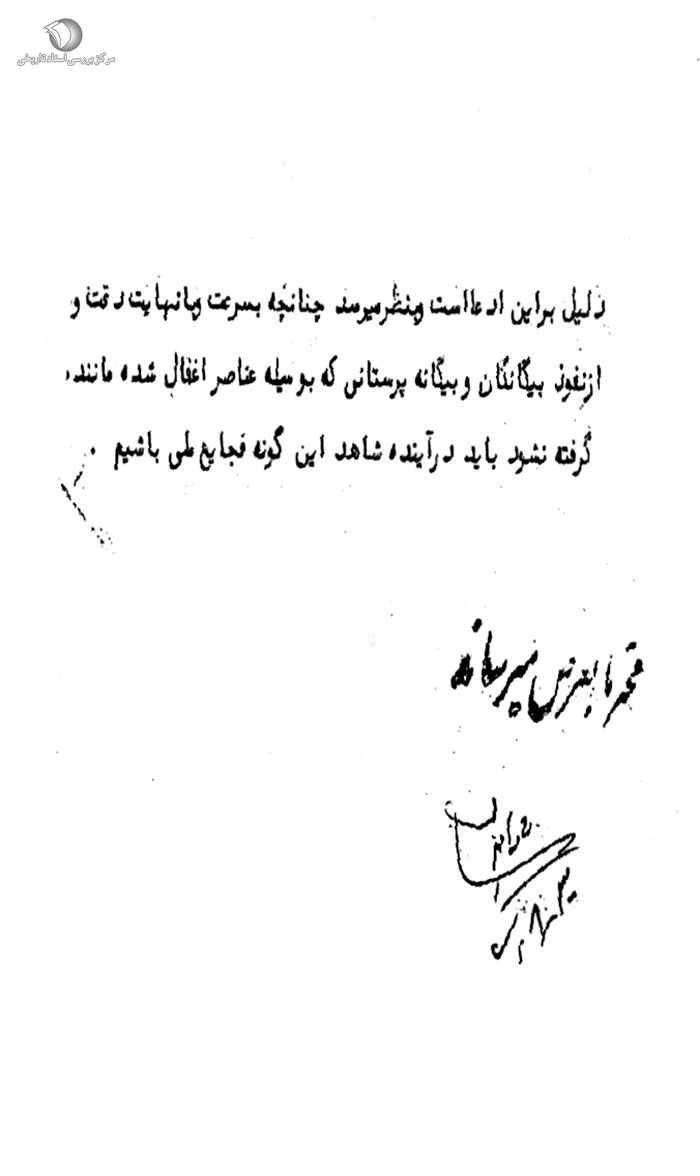 مرکز بررسی اسناد تاریخی
دلیل براین ادعااست وبنظرمیرسد چنانچه بسرعت وبانهایت دقت و
ازنفوذ بیگانگان وبیگانه پرستانی که بوسیله عناصر اغفال شده مانند
گرفته نشود باید درآینده شاهد این گونه فجایع ملی باشیم .
محترما بعرض میرساند